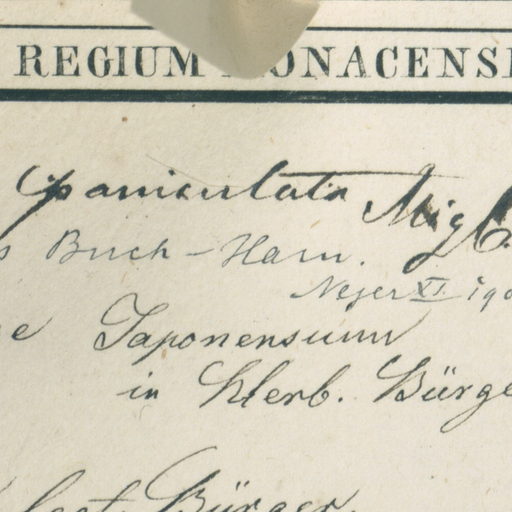 REGIUM MONACENS
paniculata Miq
Buch-Ham.
XI.
Japonensium
in Herb. Bürge
lect. Bürger.